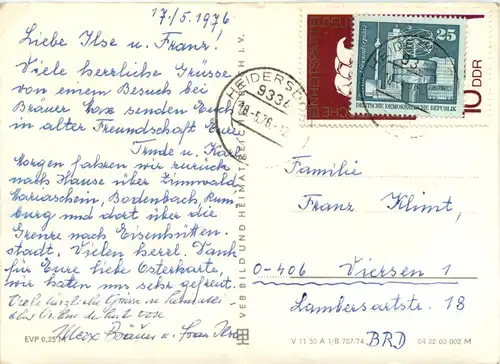 17/5. 1976
Liebe Ilse u. Franz!
Viele herrliche Grüsse
von einem Besuch bei
Bräuer Max senden Euch
in alter Freundschaft Eure
Trude u. Karl
Morgen fahren wir zurück
nach Hause über Zinnwald,
Mariaschein, Bodenbach, Rum-
burg und dort über die
Grenze nach Eisenhütten-
stadt. Vielen herzl. Dank
für Eure liebe Osterkarte,
wir haben uns sehr gefreut.
Viele herzliche Grüsse in
von
Max Bräuer u. Frau Ilse
EVP 0,25 M
VEB BILD UND HEIMAT REICHENBACH I. V.
HEIDERSDORF
9336
18.-5.76.-12
DEUTSCHE DEMOKRATISCHE REPUBLIK
25
10 DDR
Familie
Franz Klimt,
O-406 Viersen 1
Lambersartstr. 18
BRD
V 11 50 A 1/B 707/74 04 22 03 002 M